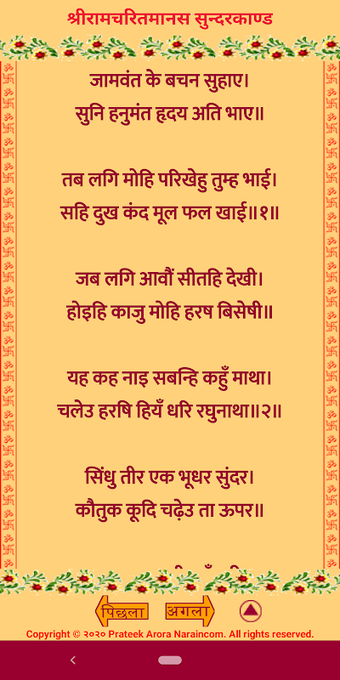 श्रीरामचरितमानस सुन्दरकाण्ड
जामवंत के बचन सुहाए।
सुनि हनुमंत हृदय अति भाए॥
तब लगि मोहि परिखेहु तुम्ह भाई।
सहि दुख कंद मूल फल खाई॥१॥
जब लगि आवौं सीतहि देखी।
होइहि काजु मोहि हरष बिसेषी॥
यह कह नाइ सबन्हि कहुँ माथा।
चलेउ हरषि हियँ धरि रघुनाथा॥२॥
सिंधु तीर एक भूधर सुंदर।
कौतुक कूदि चढ़ेउ ता ऊपर॥
पिछला अगला
Copyright © २०२० Prateek Arora Naraincom. All rights reserved.